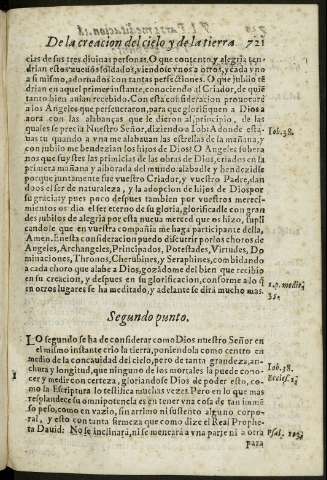 De la creacion del cielo y de la tierra. 721
cias de sus tres diuinas personas. O que contento, y alegria ten-
drian estos nueuos soldados, viendose vnos a otros, y cada vno
a si mismo, adornados con tantas perfectiones. O que jubilo tē
drian en aquel primer instante, conociendo al Criador, de quiē
tanto bien auian recebido. Con esta consideracion prouocarè
a los Angeles que perseueraron, para que glorifiquen a Dios a
aora con las alabanças que le dieron al principio, de las
quales se precia Nuestro Señor, diziendo a Iob: A donde esta-
bas tu quando a vna me alababan las estrellas de la mañana, y
con jubilo me bendezian los hijos de Dios? O Angeles sobera
nos que fuystes las primicias de las obras de Dios, criados en la
primera mañana y alborada del mundo: alabadle y bendezidle
porque juntamente fue vuestro Criador, y vuestro Padre, dan
doos el ser de naturaleza, y la adopcion de hijos de Dios por
su gracia; y pues poco despues tambien por vuestros mereci-
mientos os dio el ser eterno de su gloria, glorificadle con gran
des jubilos de alegria por esta nueua merced que os hizo, supli
candole que en vuestra compañia me haga participante della,
Amen. En esta consideracion puedo discurrir por los choros de
Angeles, Archangeles, Principados, Potestades, Virtudes, Do
minaciones, Thronos, Cherubines, y Seraphines, combidando
a cada choro que alabe a Dios, gozādome del bien que recibio
en su creacion, y despues en su glorificacion, conforme a lo q̄
en otros lugares se ha meditado, y adelante se dirá mucho mas.
Iob. 38.
1. p. medit.
35.
Segundo punto.
LO segundo se ha de considerar como Dios nuestro Señor en
el mismo instante crio la tierra, poniendola como centro en
medio de la concauidad del cielo, pero de tanta grandeza, an-
chura y longitud, que ninguno de los mortales la puede cono-
cer y medir con certeza, gloriandose Dios de poder esto, co-
mo la Escriptura lo testifica muchas vezes. Pero en lo que mas
resplandece su omnipotencia es en tener vna cosa de tan inmē
so peso, como en vazio, sin arrimo ni sustento alguno corpo-
ral, y esto con tanta firmeza que como dize el Real Prophe
ta Dauid: No se inclinará, ni se meneará a vna parte ni a otra
para
1
Iob. 38.
Eccles. 1.
Psal. 103.